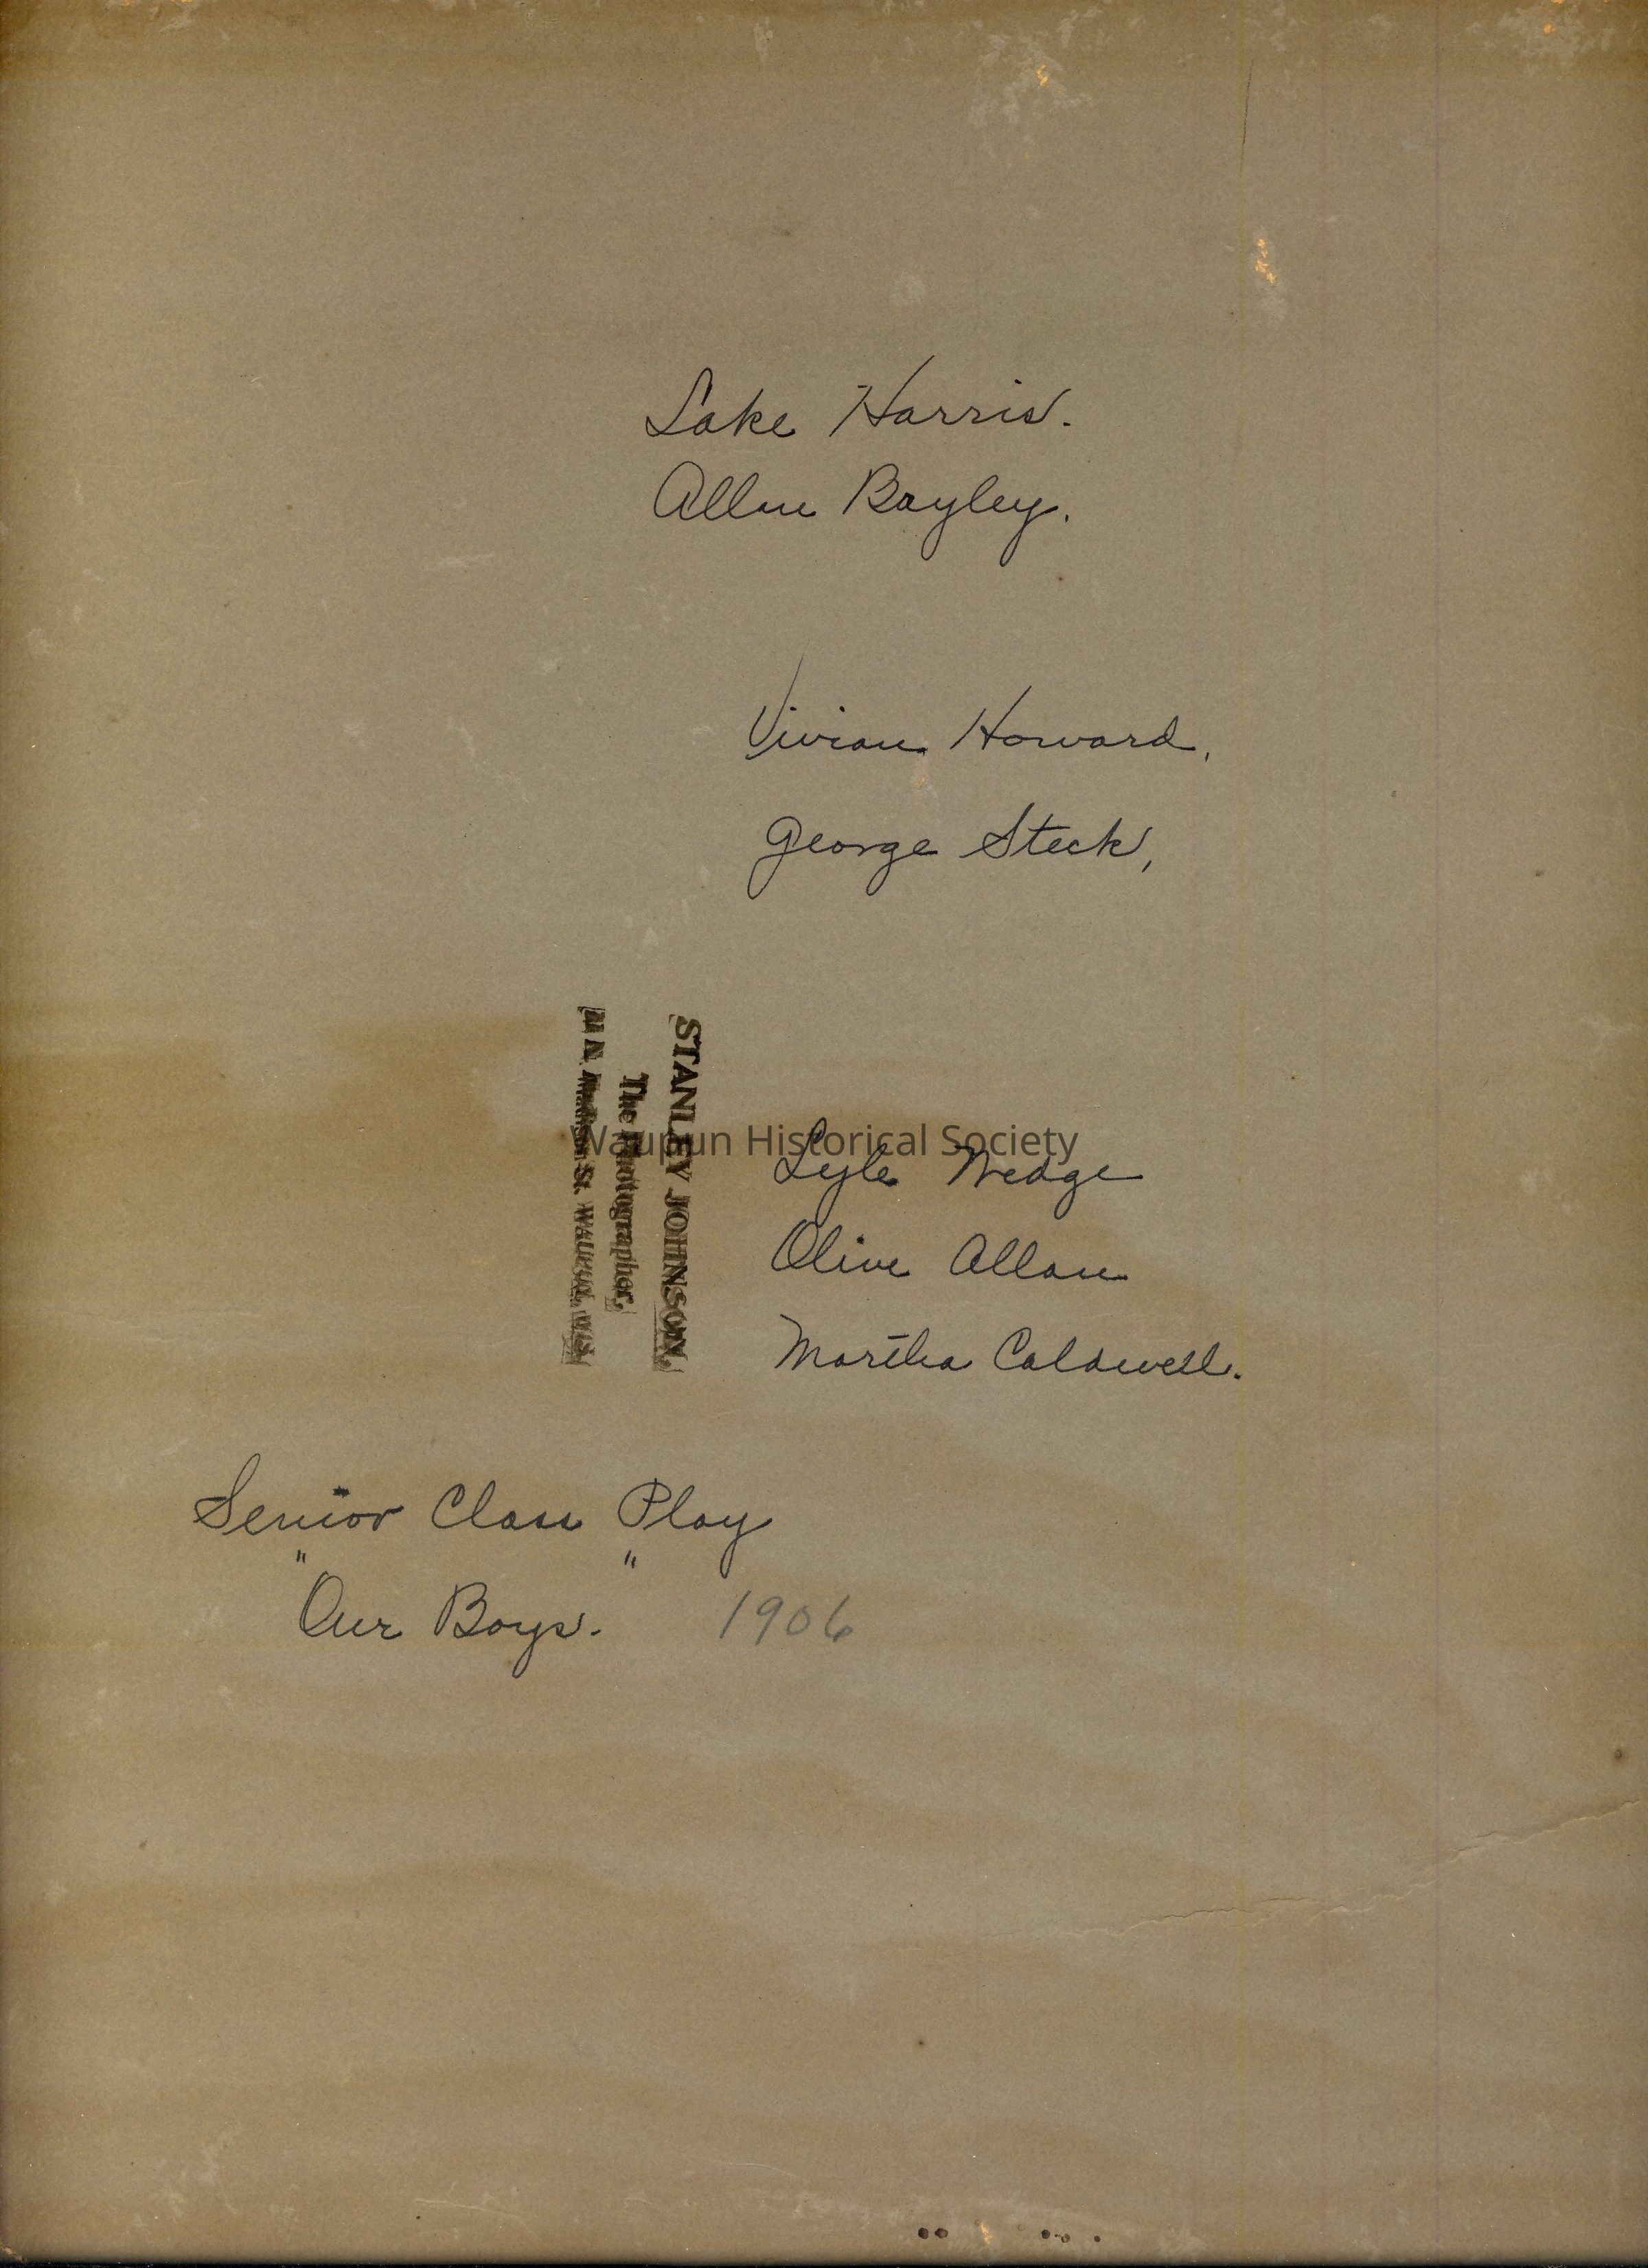 Lake Harris.
Allan Bayley.
Vivian Howard,
George Steck,
STANLEY JOHNSON,
The Photographer,
N. Madison St. WAUPUN, WIS.
Waupun Historical Society
Lyle Wedge
Olive Allan
Martha Caldwell.
Senior Class Play
"Our Boys." 1906